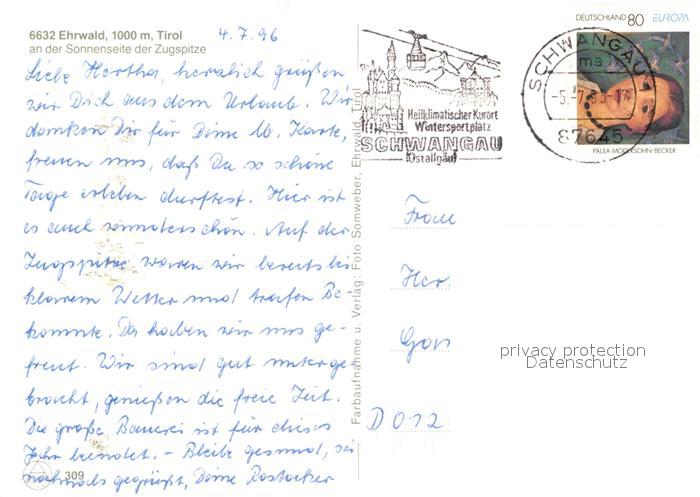 6632 Ehrwald, 1000 m, Tirol
an der Sonnenseite der Zugspitze
4.7.96
Liebe Hertha, herzlich grüßen
wir Dich aus dem Urlaub. Wir
danken Dir für Deine lb. Karte,
freuen uns, daß Du so schöne
Tage erleben durftest. Hier ist
es auch wunderschön. Auf der
Zugspitze waren wir bereits bei
klarem Wetter und trafen Be-
kannte. Da haben wir uns ge-
freut. Wir sind gut unterge-
bracht, genießen die freie Zeit.
Die große Bauerei ist für dieses
Jahr beendet. - Bleibe gesund, sei
nochmals gegrüßt, Deine Rostocker
309
Farbaufnahme u. Verlag: Foto Somweber, Ehrwald, Tirol
Heilklimatischer Kurort
Wintersportplatz
SCHWANGAU
(Ostallgäu)
DEUTSCHLAND 80 EUROPA
SCHWANGAU 1
ma
87645
PAULA MODERSOHN-BECKER
Frau
Her
D 012
privacy protection
Datenschutz